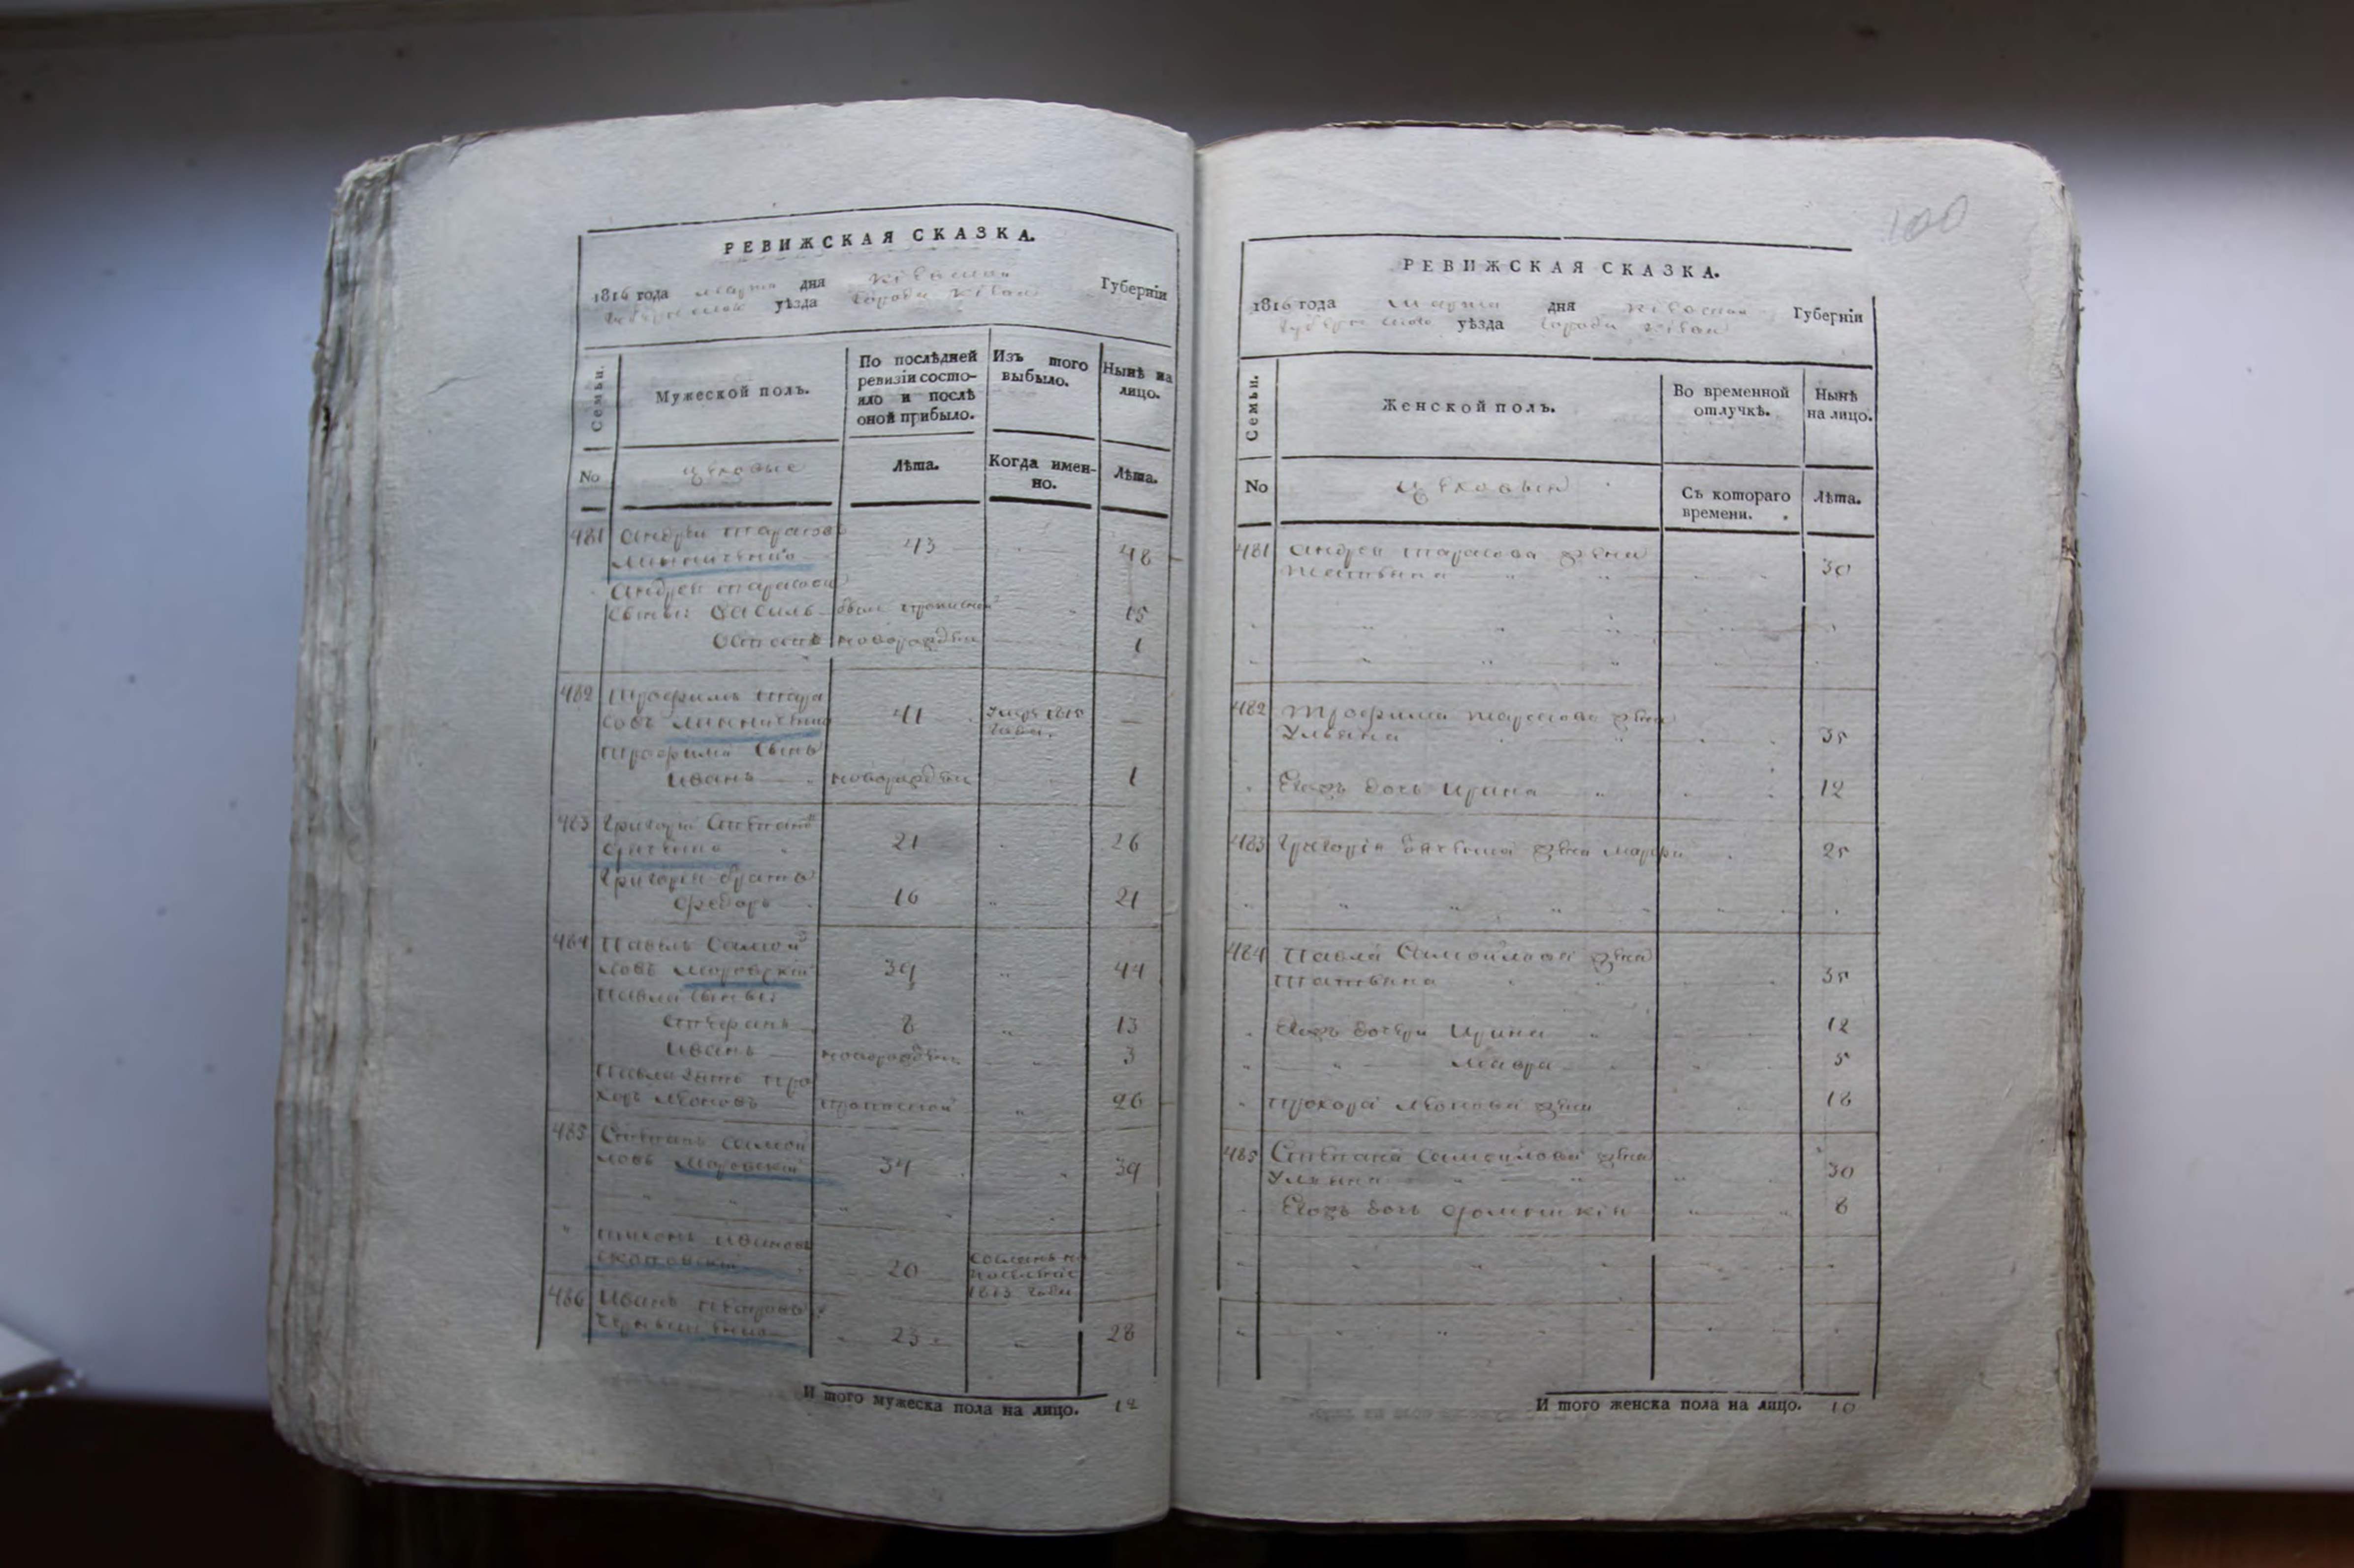 РЕВИЖСКАЯ СКАЗКА.
1816 года марта дня Кіевской Губерніи
уѣзда города Кіева
Семьи.
Мужеской полъ.
По послѣдней ревизіи состояло и послѣ оной прибыло.
Изъ того выбыло.
Нынѣ на лицо.
No
цеховые
Лѣта.
Когда именно.
Лѣта.
481 Андрей Тарасовъ
43 48
Андрея Тарасова
сыны: Василь 15
Остапъ новорожден 1
482 Трофимъ Тара
совъ 41 умре 1815 года —
Трофима сынъ
Иванъ новорожден 1
483 Григорій Степановъ
21 26
Григорія братъ
Федоръ 16 21
484 Павелъ Самой
ловъ Моровскій 39 44
Павла сыны:
Стефанъ 8 13
Иванъ новорожден 3
Павла зять Про
хоръ 26
485 Степанъ Самой
ловъ Моровскій 34 39
Тихонъ Ивановъ
20 сосланъ на поселеніе 1813 года
486 Иванъ
23 28
И того мужеска пола на лицо. 12
100
РЕВИЖСКАЯ СКАЗКА.
1816 года марта дня Кіевской Губерніи
уѣзда города Кіева
Семьи.
Женской полъ.
Во временной отлучкѣ.
Нынѣ на лицо.
No
Съ котораго времени.
Лѣта.
481 Андрея Тарасова жена
Татьяна 30
482 Трофима Тарасова жена
Ульяна 35
Ихъ дочь Ирина 12
483 Григорія жена 25
484 Павла Самойлова жена
Татьяна 35
Ихъ дочери Ирина 12
Мавра 5
Прохора жена 18
485 Степана Самойлова жена
Ульяна 30
Ихъ дочь 8
И того женска пола на лицо. 10